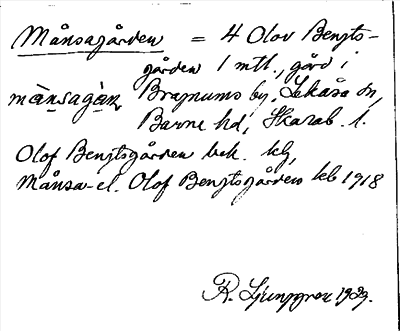 Månsagården = 4 Olov Bengts-
gården 1 mtl., gård i
mànsagàn Bragnums by, Lekåsa sn,
Barne hd, Skarab. l.
Olof Bengtsgården bek. klg,
Månsa- el. Olof Bengtsgården kls 1918
R. Ljunggren 1939.